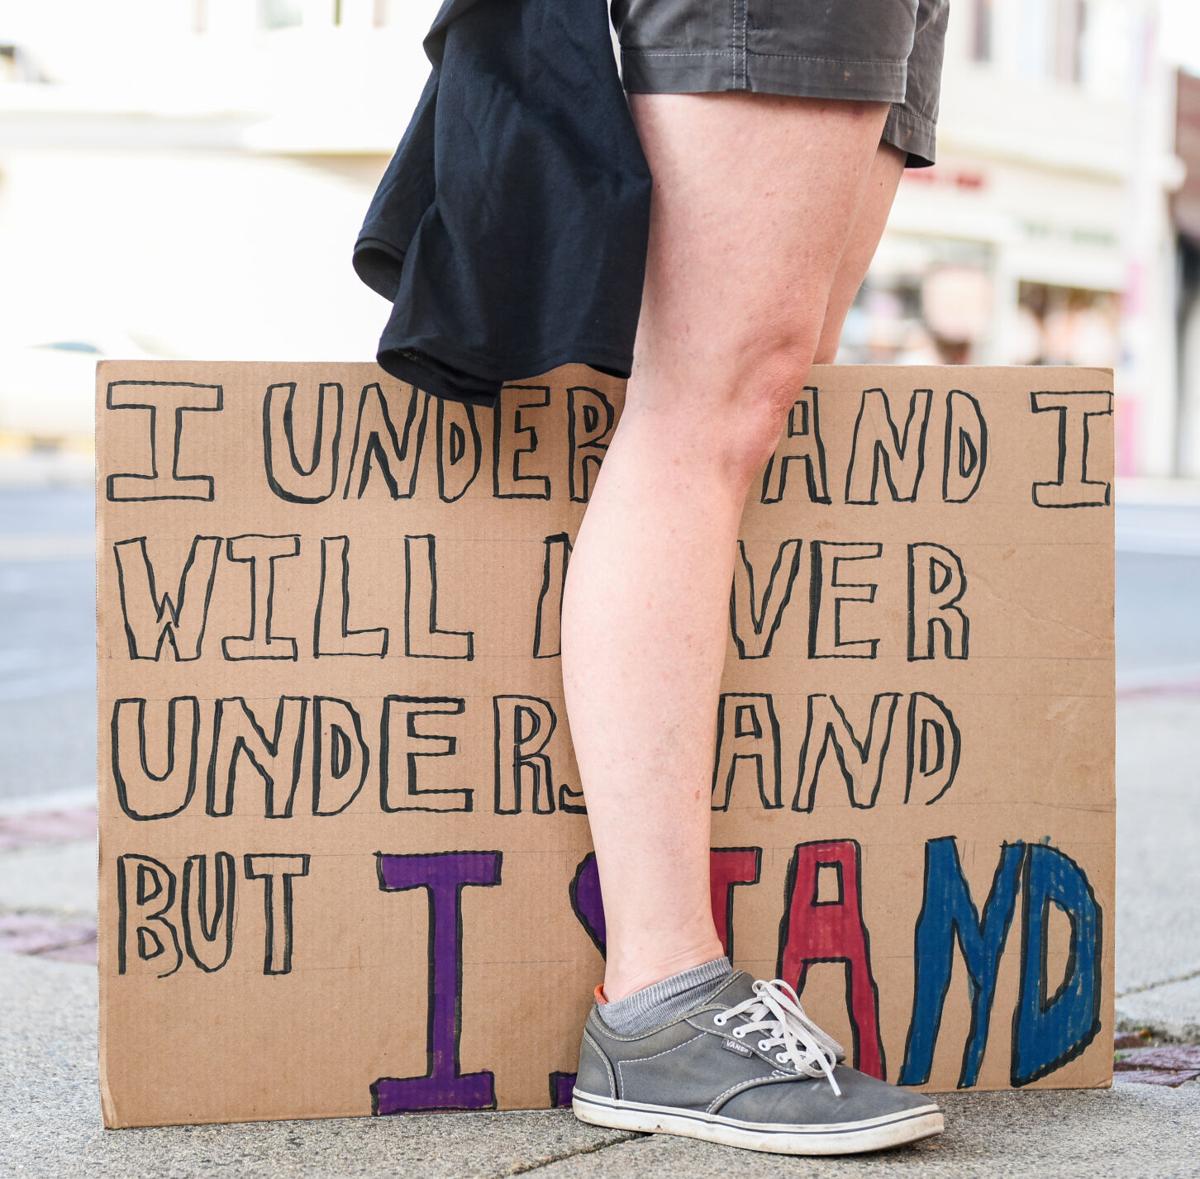 I UNDERSTAND I
WILL NEVER
UNDERSTAND
BUT I STAND
VANS